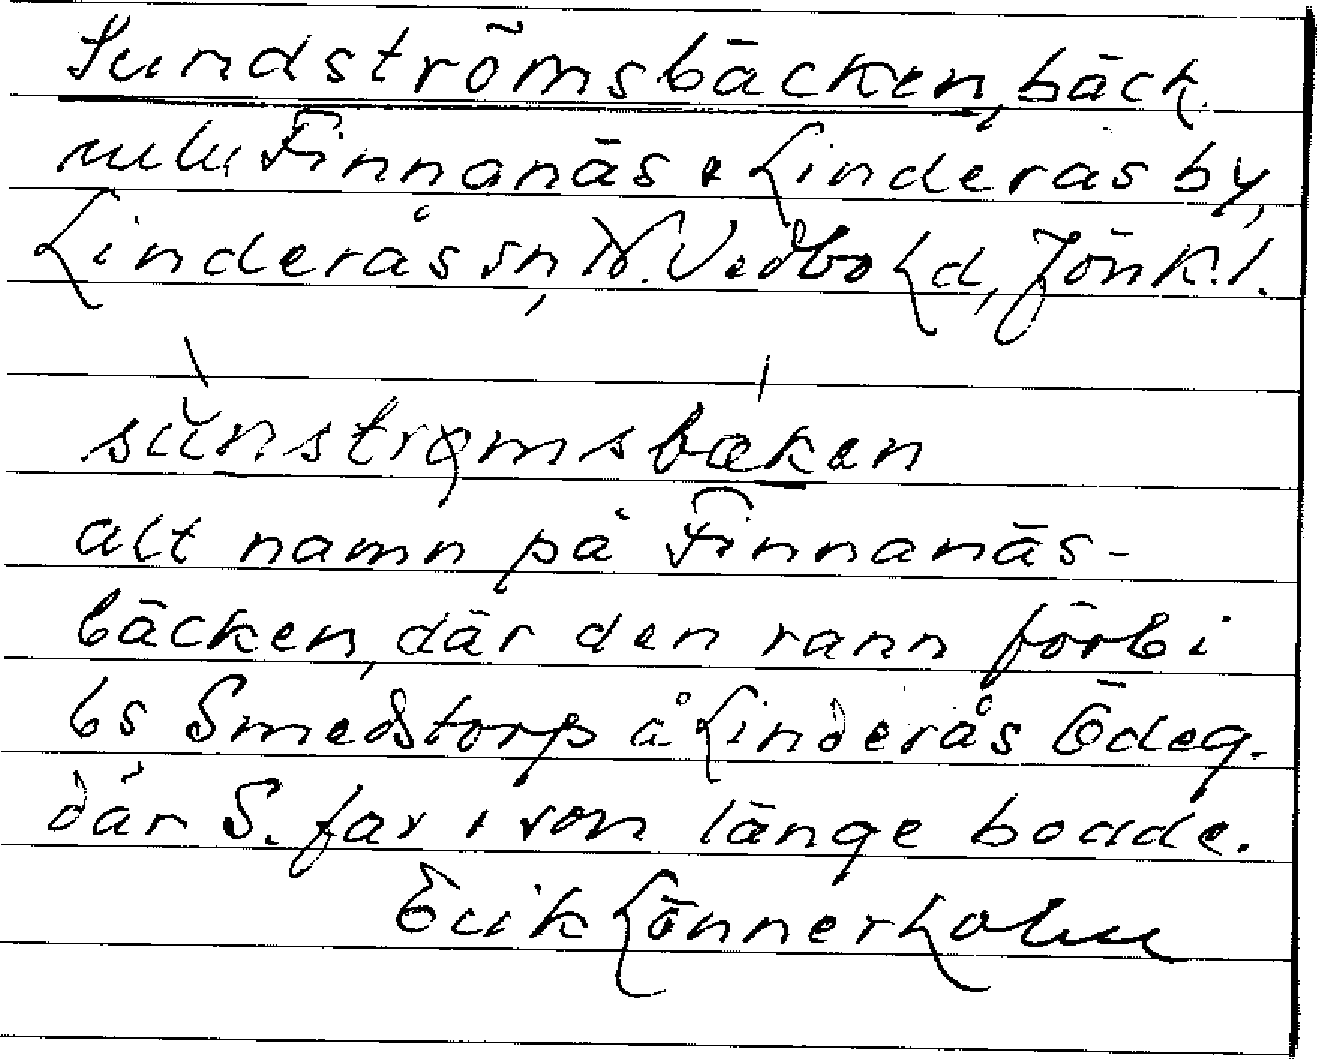 Sundströmsbäcken, bäck
mellan Finnanäs & Linderås by,
Linderås sn, N. Vedbo hd, Jönk. l.
sunstrømsbækən
alt namn på Finnanäs-
bäcken, där den rann förbi
bs Smedstorp å Linderås Ödeg.
där S. far & son länge bodde.
Erik Lönnerholm